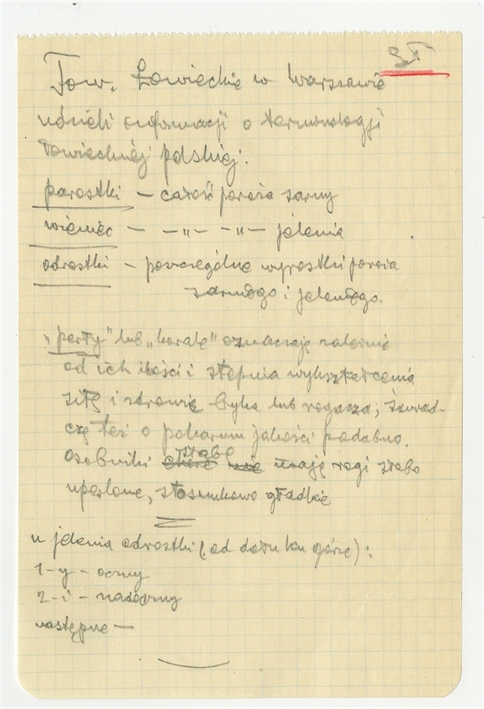 Tow. Łowieckie w Warszawie
udzieli informacji o terminologji
łowieckiej polskiej.
parostki – całość poroża sarny
wieniec – – „ – – „ – jelenia
odrostki – poszczególne wyrostki poroża
sarniego i jeleniego.
„perły” lub „korale” oznaczają zależnie
od ich ilości i stopnia wykształcenia
siłę i zdrowie byka lub rogacza, świad-
czą też o pokarmu jakości podobno.
Osobniki słabe mają rogi słabo
uperlone, stosunkowo gładkie
u jelenia odrostki (od dołu ku górze):
1-y – oczny
2-i – nadoczny
następne –